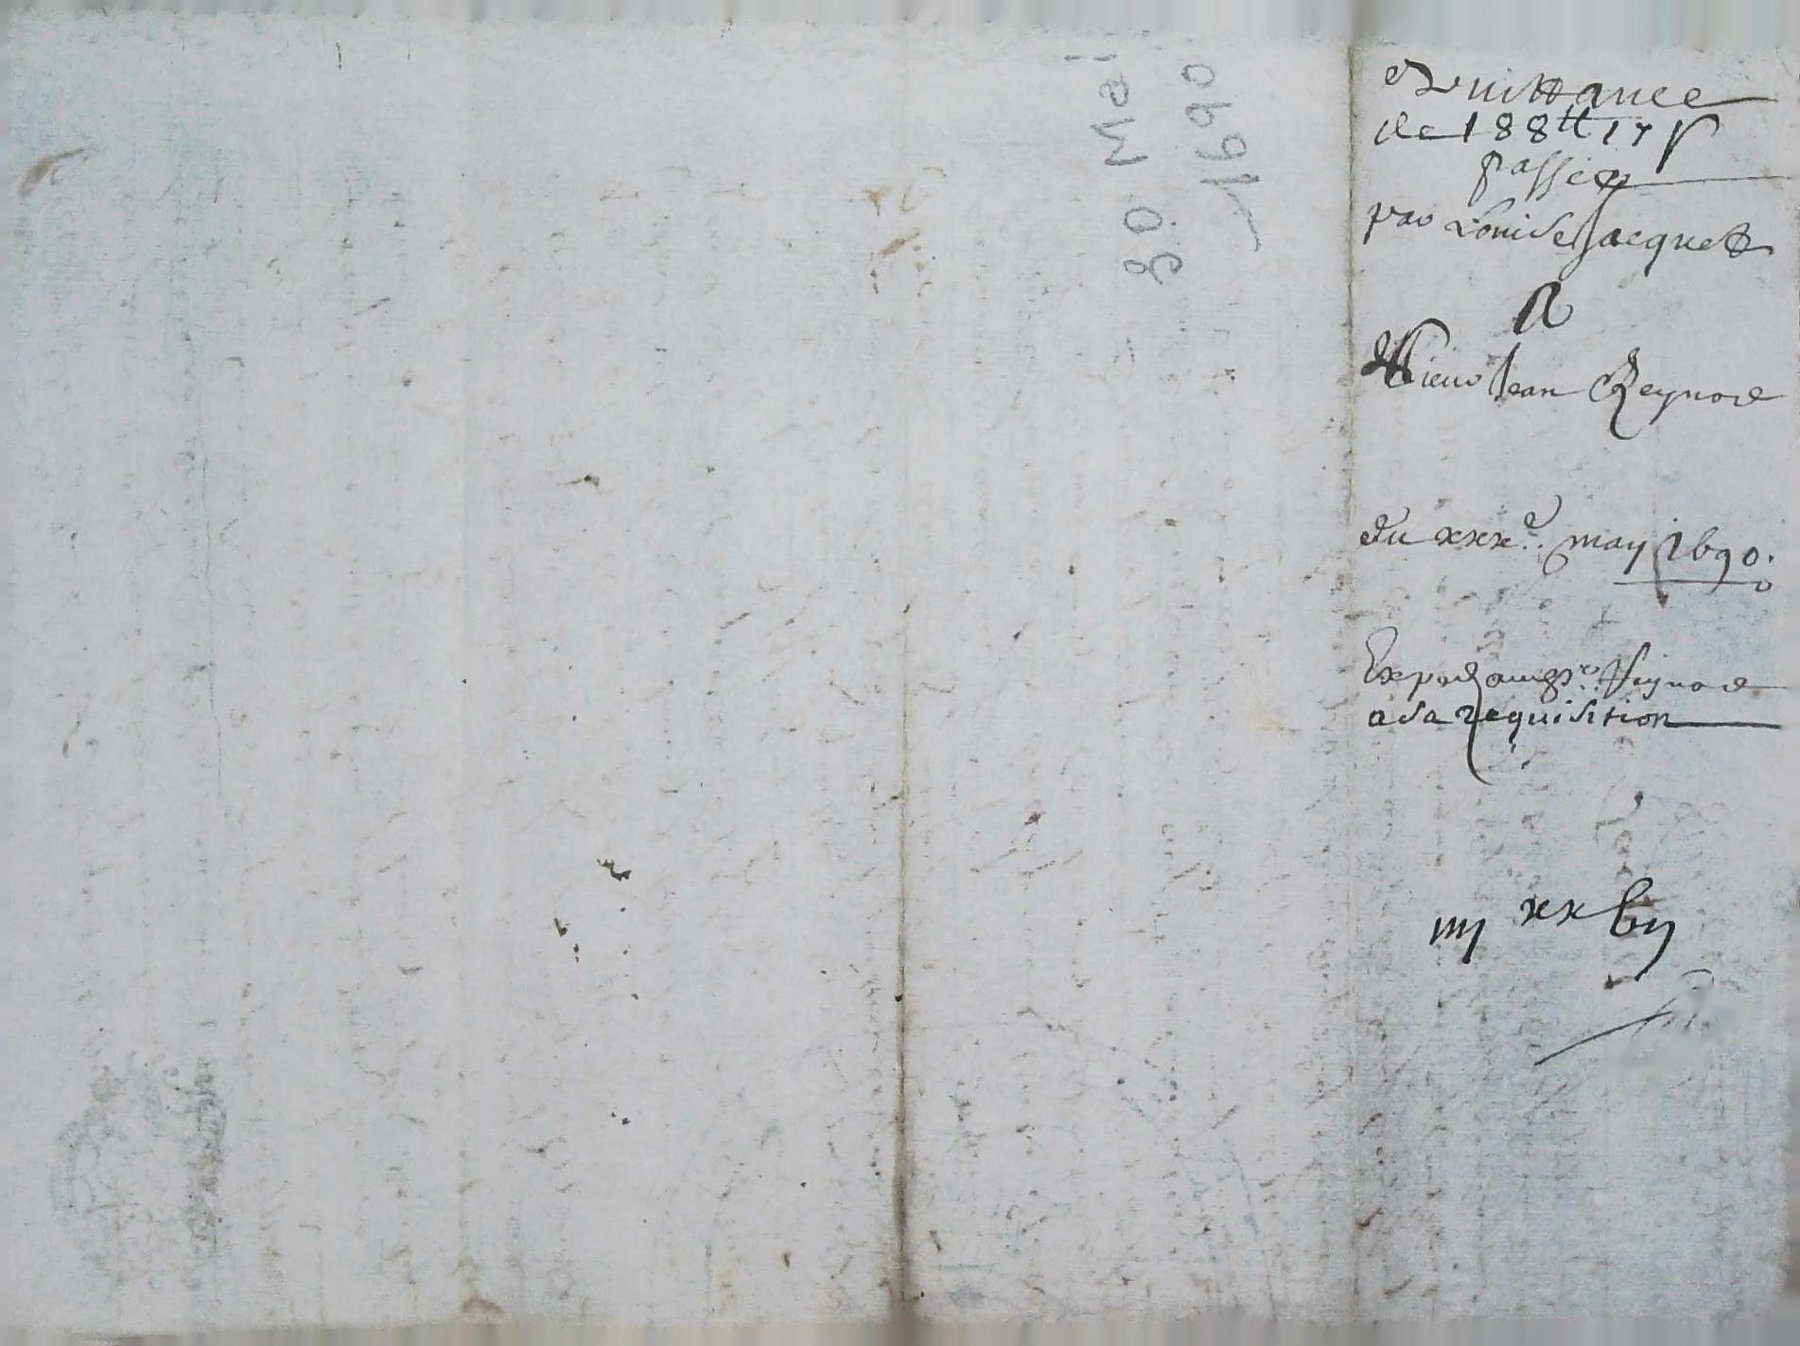 30 Mai
1690
Quittance
de 188tt 17 s
passée
par Louise Jacquet
A
Sieur Jean Reynod
du xxxe. may 1690.
Exped aud sr. Reynod
a sa requisition
iiij xx bij